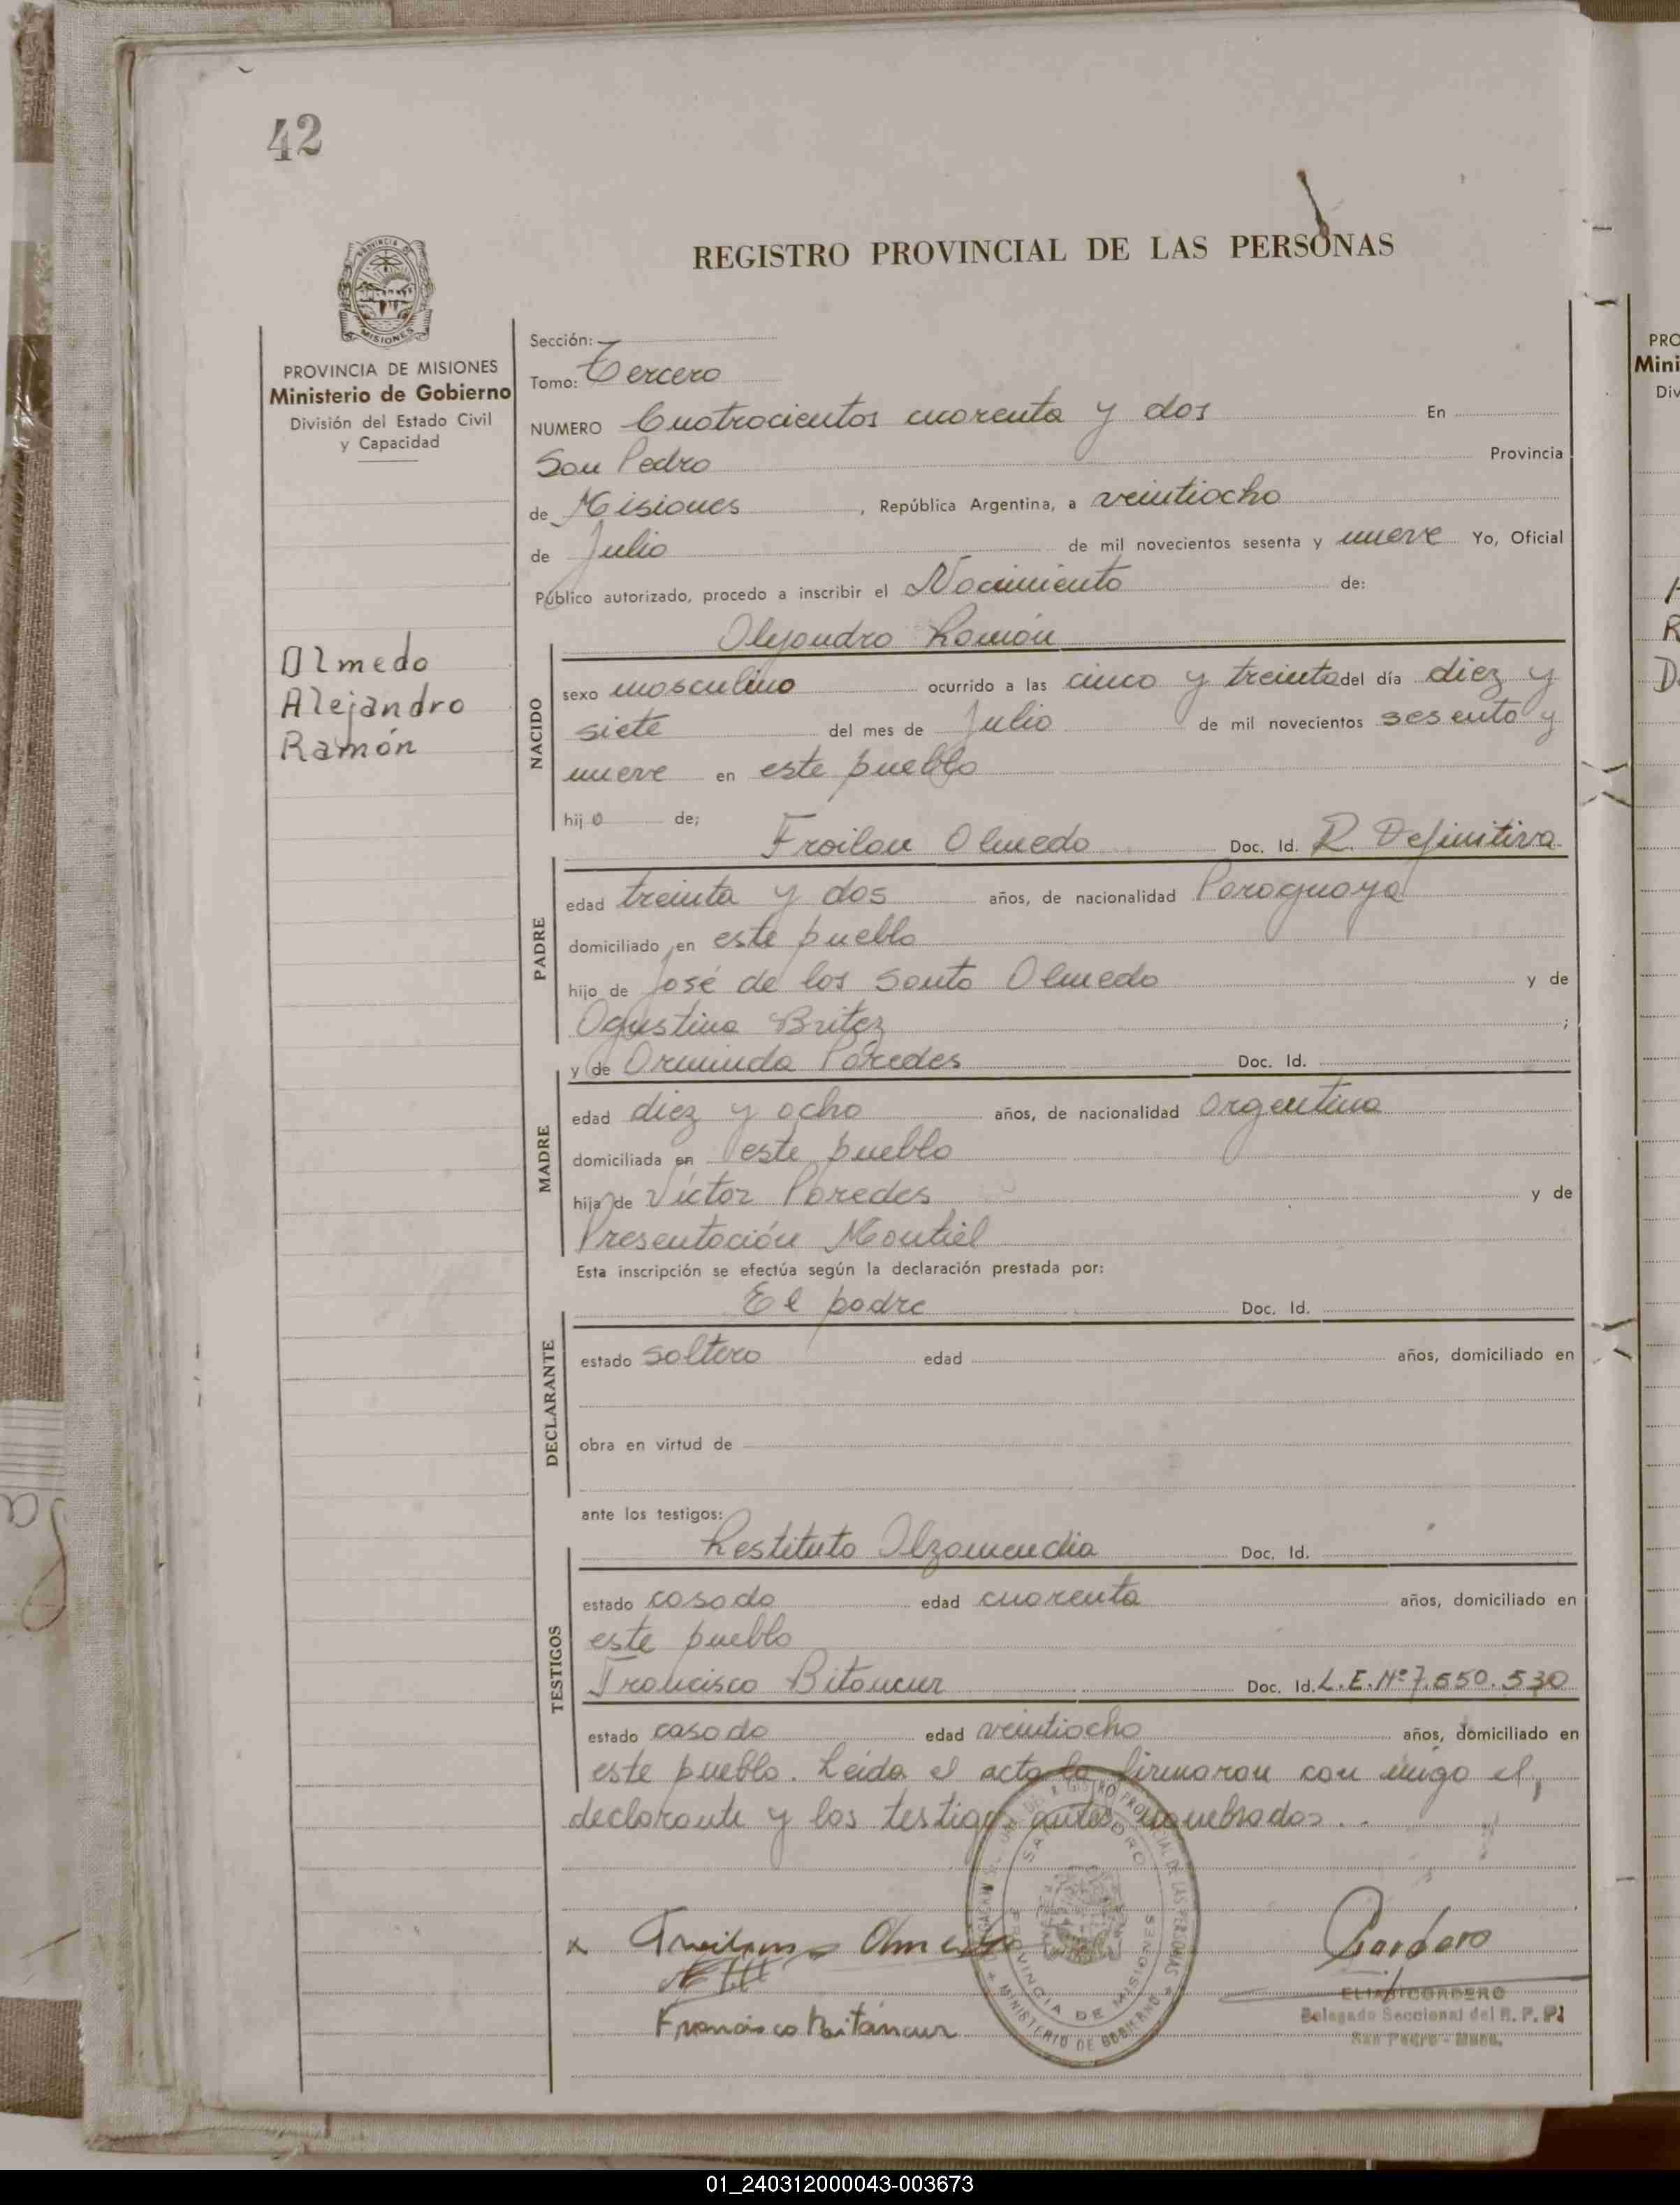 42
REGISTRO PROVINCIAL DE LAS PERSONAS
MISIONES
PROVINCIA DE MISIONES
Ministerio de Gobierno
División del Estado Civil
y Capacidad
Olmedo
Alejandro
Ramón
Sección:
Tomo: Tercero
NUMERO Cuatrocientos cuarenta y dos En
San Pedro Provincia
de Misiones, República Argentina, a veintiocho
de Julio de mil novecientos sesenta y nueve Yo, Oficial
Público autorizado, procedo a inscribir el Nacimiento de:
Alejandro Ramón
NACIDO
sexo masculino ocurrido a las cinco y treinta del día diez y
siete del mes de Julio de mil novecientos sesenta y
nueve en este pueblo
hijo de;
Froilan Olmedo Doc. Id. R. Definitiva
PADRE
edad treinta y dos años, de nacionalidad Paraguaya
domiciliado en este pueblo
hijo de José de los Santo Olmedo y de
Agustina Britez ;
y de Orminda Paredes Doc. Id.
MADRE
edad diez y ocho años, de nacionalidad argentina
domiciliada en este pueblo
hija de Víctor Paredes y de
Presentación Montiel
Esta inscripción se efectúa según la declaración prestada por:
El padre Doc. Id.
DECLARANTE
estado soltero edad años, domiciliado en
obra en virtud de
ante los testigos:
Restituto Alzamendia Doc. Id.
TESTIGOS
estado casado edad cuarenta años, domiciliado en
este pueblo
Francisco Bitancur Doc. Id. L.E. Nº 7.550.530
estado casado edad veintiocho años, domiciliado en
este pueblo. Leida el acta la firmaron con migo el,
declarante y los testigos antes nombrados..
x Froilan Olmedo
Francisco Bitáncur
Cordero
ELIAS CORDERO
Delegado Seccional del R. P. P.
San Pedro - Mnes.
REGISTRO PROVINCIAL DE LAS PERSONAS
SAN PEDRO
PROVINCIA DE MISIONES
MINISTERIO DE GOBIERNO
PRO
Mini
Div
01_240312000043-003673